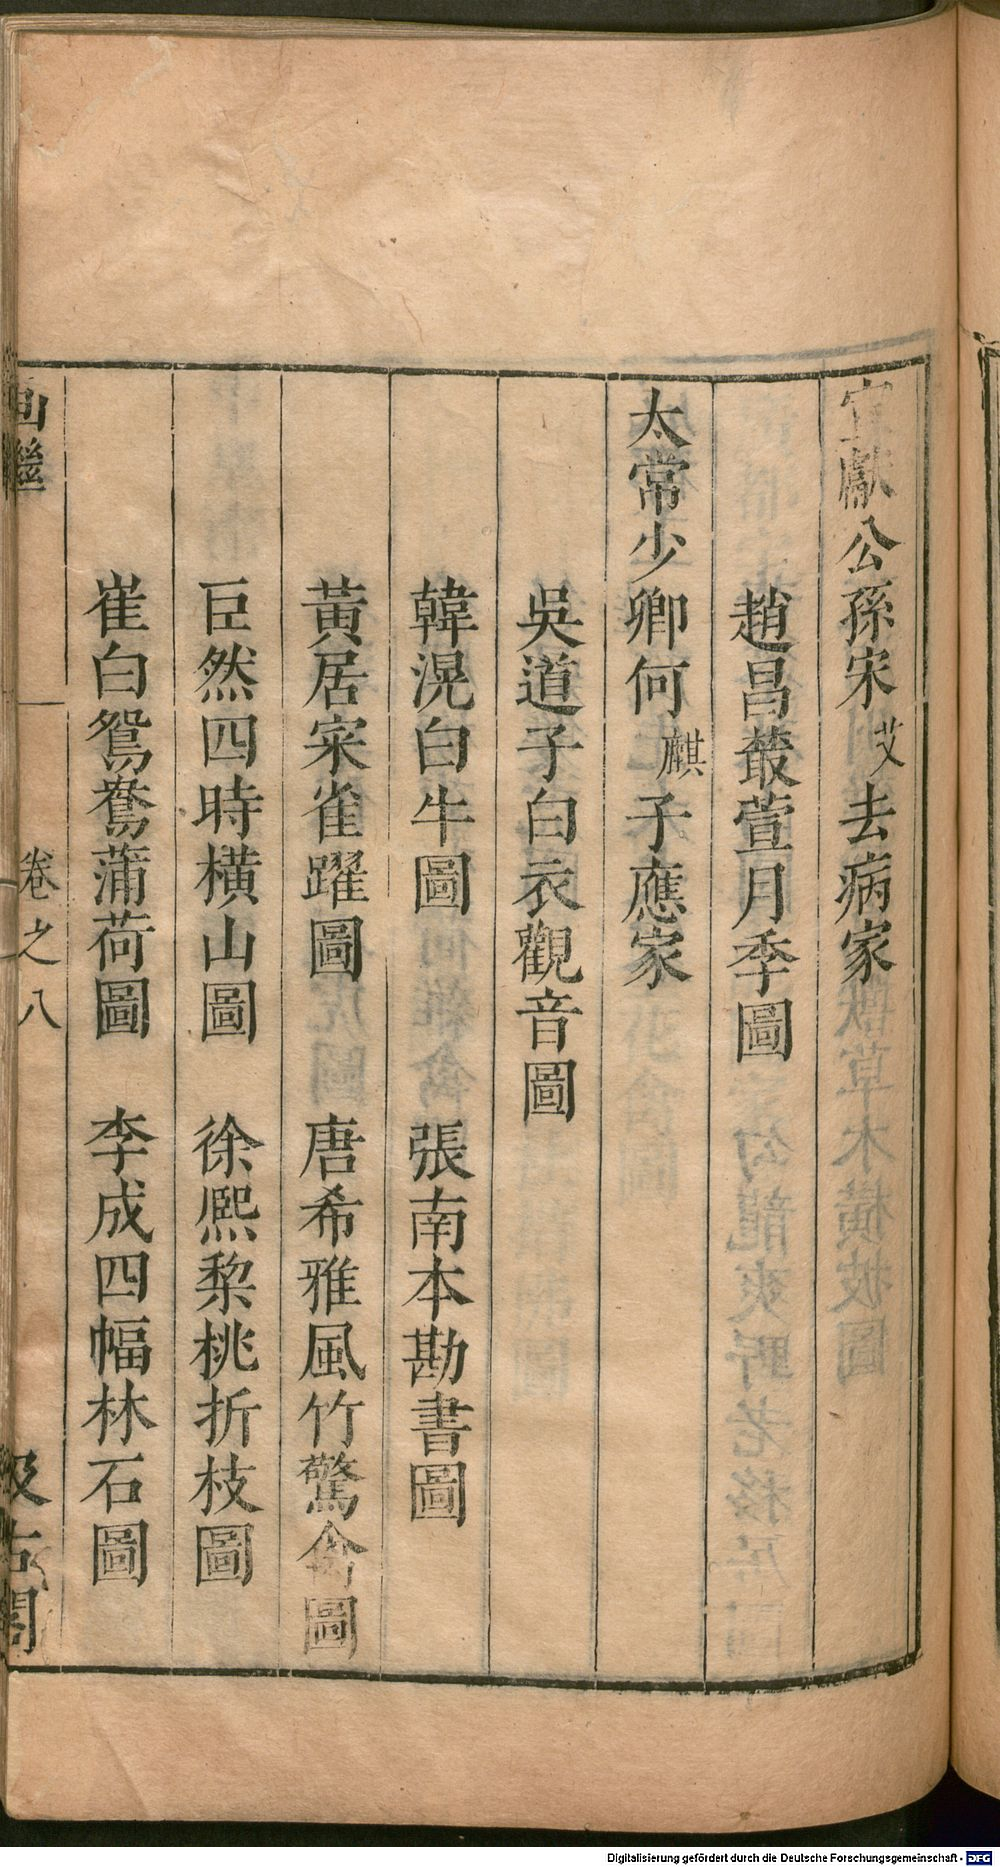 宣獻公孫宋艾去病家
趙昌叢萱月季圖
太常少卿何麒子應家
吳道子白衣觀音圖
韓滉白牛圖 張南本勘書圖
黃居寀雀躍圖 唐希雅風竹驚禽圖
巨然四時橫山圖 徐熙棃桃折枝圖
崔白鴛鴦蒲荷圖 李成四幅林石圖
画繼 卷之八 汲古閣
Digitalisierung gefördert durch die Deutsche Forschungsgemeinschaft - DFG